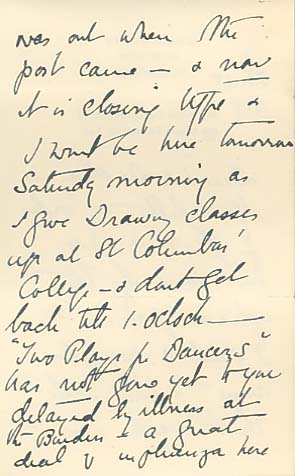 was out when the
post came — & now
it is closing type &
I wont be here tomorrow
Saturday morning as
I give Drawing classes
up at St Columbas'
College — & dont get
back till 1. oclock —
"Two Plays for Dancers"
has not gone yet to you
delayed by illness at
the Binders — a great
deal of influenza here